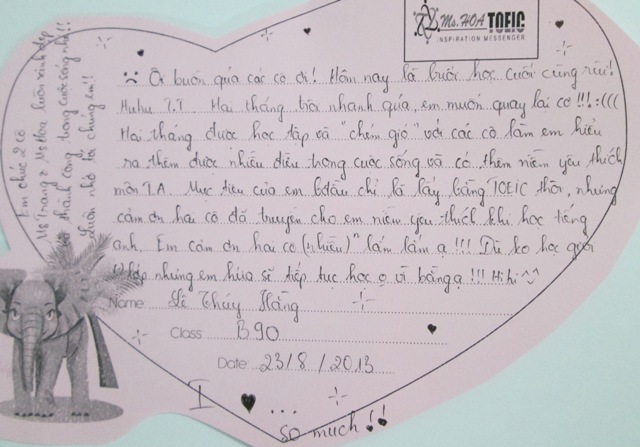 Ms. HOA TOEIC
INSPIRATION MESSENGER
Em chúc 2 cô
Ms Trang & Ms Hoa luôn xinh đẹp
và thành công trong cuộc sống nhé!!
Luôn nhớ tới chúng em!!
:( Ôi buồn quá các cô ơi! Hôm nay là buổi học cuối cùng rùi!
Huhu T.T Hai tháng trôi nhanh quá, em muốn quay lại cơ!!! :(((
Hai tháng được học tập và "chém gió" với các cô làm em hiểu
ra thêm được nhiều điều trong cuộc sống và có thêm niềm yêu thích
môn T.A. Mục tiêu của em bđầu chỉ là lấy bằng TOEIC thôi, nhưng
cảm ơn hai cô đã truyền cho em niềm yêu thích khi học tiếng
anh. Em cảm ơn hai cô (nhiều)ⁿ lắm lắm ạ!!! Dù ko học giỏi
lớp nhưng em hứa sẽ tiếp tục học vì bằng ạ!!! Hihi ^^
Name Lê Thúy Hằng
Class B90
Date 23/8/2013
I ♥ ...
so much!!